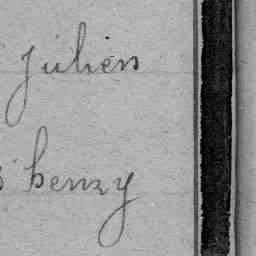 julien
henzy